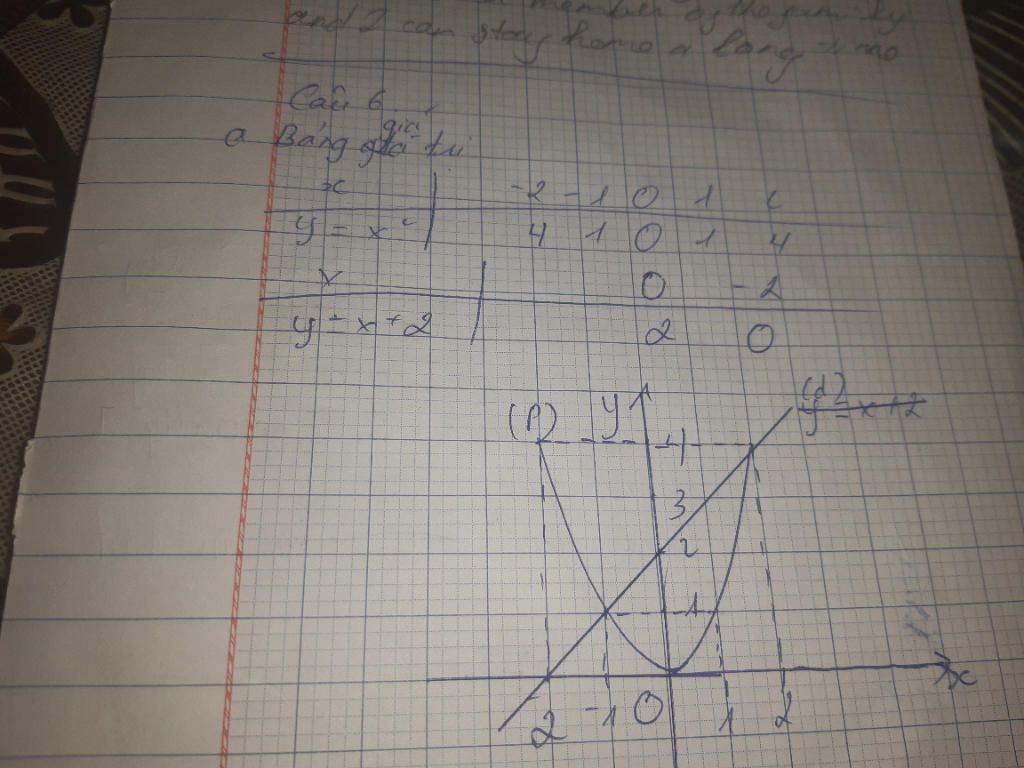 member of the family
and I can stay home a long time
Câu 6
a Bảng giá trị
x -2 -1 0 1 2
y = x² 4 1 0 1 4
x 0 -2
y = x + 2 2 0
(P) y (d) y = x + 2
4
3
2
1
2 -1 0 1 2 x